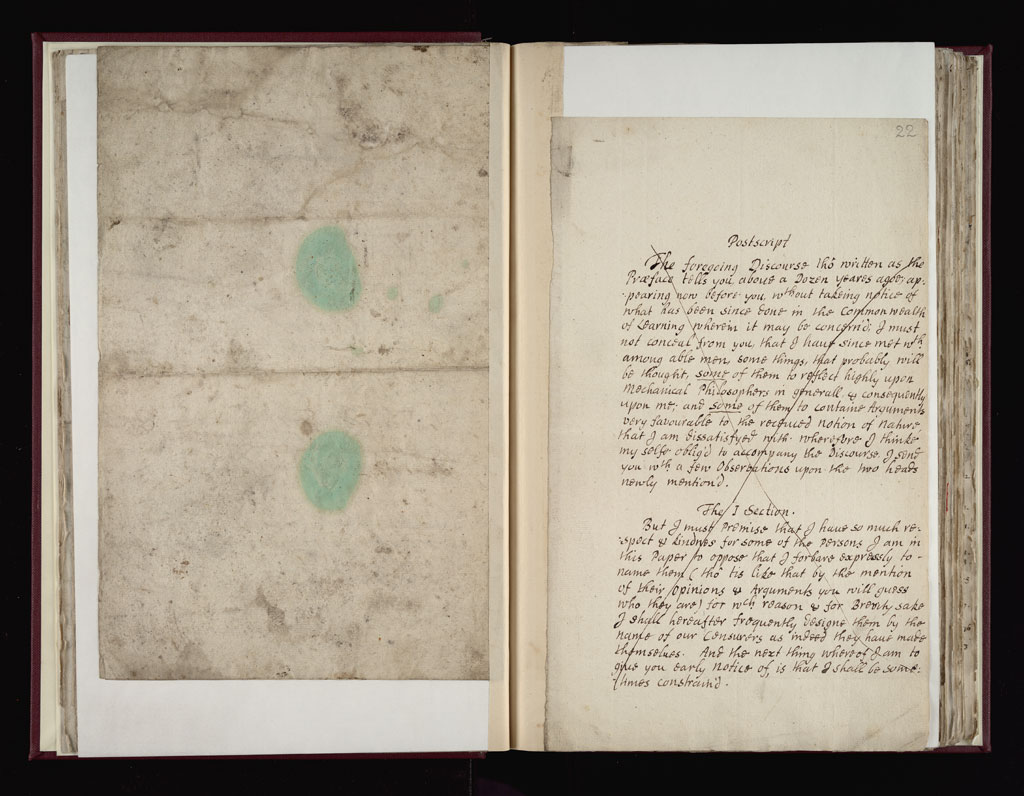 22
Postscript
The foregoing Discourse thô written as the
Præface tells you above a Dozen yeares agoe; ap-
pearing now before you, wthout takeing notice of
what has been since done in the Common wealth
of Learning wherein it may be concern'd; I must
not conceal from you, that I have since met wth
among able men, some things, that probably will
be thought, some of them to reflect highly upon
Mechanical Philosophers in generall & consequently
upon me; and some of them to containe Arguments
very favourable to the receiued notion of Nature
that I am dissatisfyed with. wherefore I thinke
my selfe oblig'd to accompany the Discourse I send
you wth a few Observations upon the two heads
newly mention'd.
The I Section.
But I must Premise that I have so much re-
spect & kindnes for some of the Persons I am in
this Paper to oppose that I forbare expressly to
name them (thô tis like that by the mention
of their Opinions & Arguments you will guess
who they are) for wch reason & for Brevity sake
I shall hereafter frequently designe them by the
name of our Censurers as indeed they have made
themselves. And the next thing whereof I am to
give you early notice of, is that I shall be some-
times constrain'd.